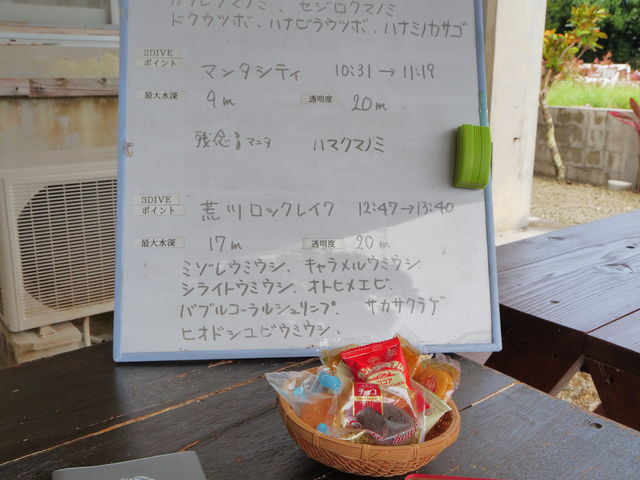 カクレクマノミ、セジロクマノミ
ドクウツボ、ハナビラウツボ、ハナミノカサゴ
2DIVE
ポイント マンタシティ 10:31→11:19
最大水深 9m 透明度 20m
残念 マンタ ハマクマノミ
3DIVE
ポイント 荒川ロックレイク 12:47→13:40
最大水深 17m 透明度 20m
ミゾレウミウシ. キャラメルウミウシ.
シライトウミウシ. オトヒメエビ.
バブルコーラルシュリンプ. サカサクラゲ
ヒオドシユビウミウシ、
チョコ